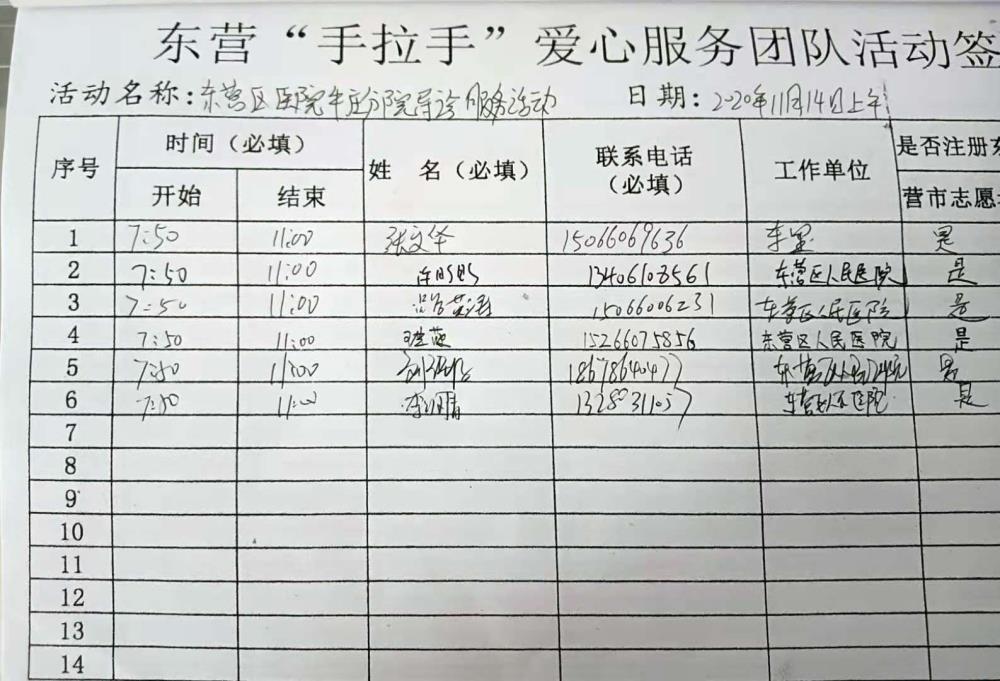 东营“手拉手”爱心服务团队活动签
活动名称：东营区医院牛庄分院导诊服务活动 日期：2020年11月14日上午
序号 时间（必填） 姓 名（必填） 联系电话（必填） 工作单位 是否注册东营市志愿
开始 结束
1 7:50 11:00 张文华 15066069636 是
2 7:50 11:00 13406108561 东营区人民医院 是
3 7:50 11:00 15066006231 东营区人民医院 是
4 7:50 11:00 15266075856 东营区人民医院 是
5 7:50 11:00 是
6 7:50 11:00 东营区人民医院 是
7
8
9
10
11
12
13
14